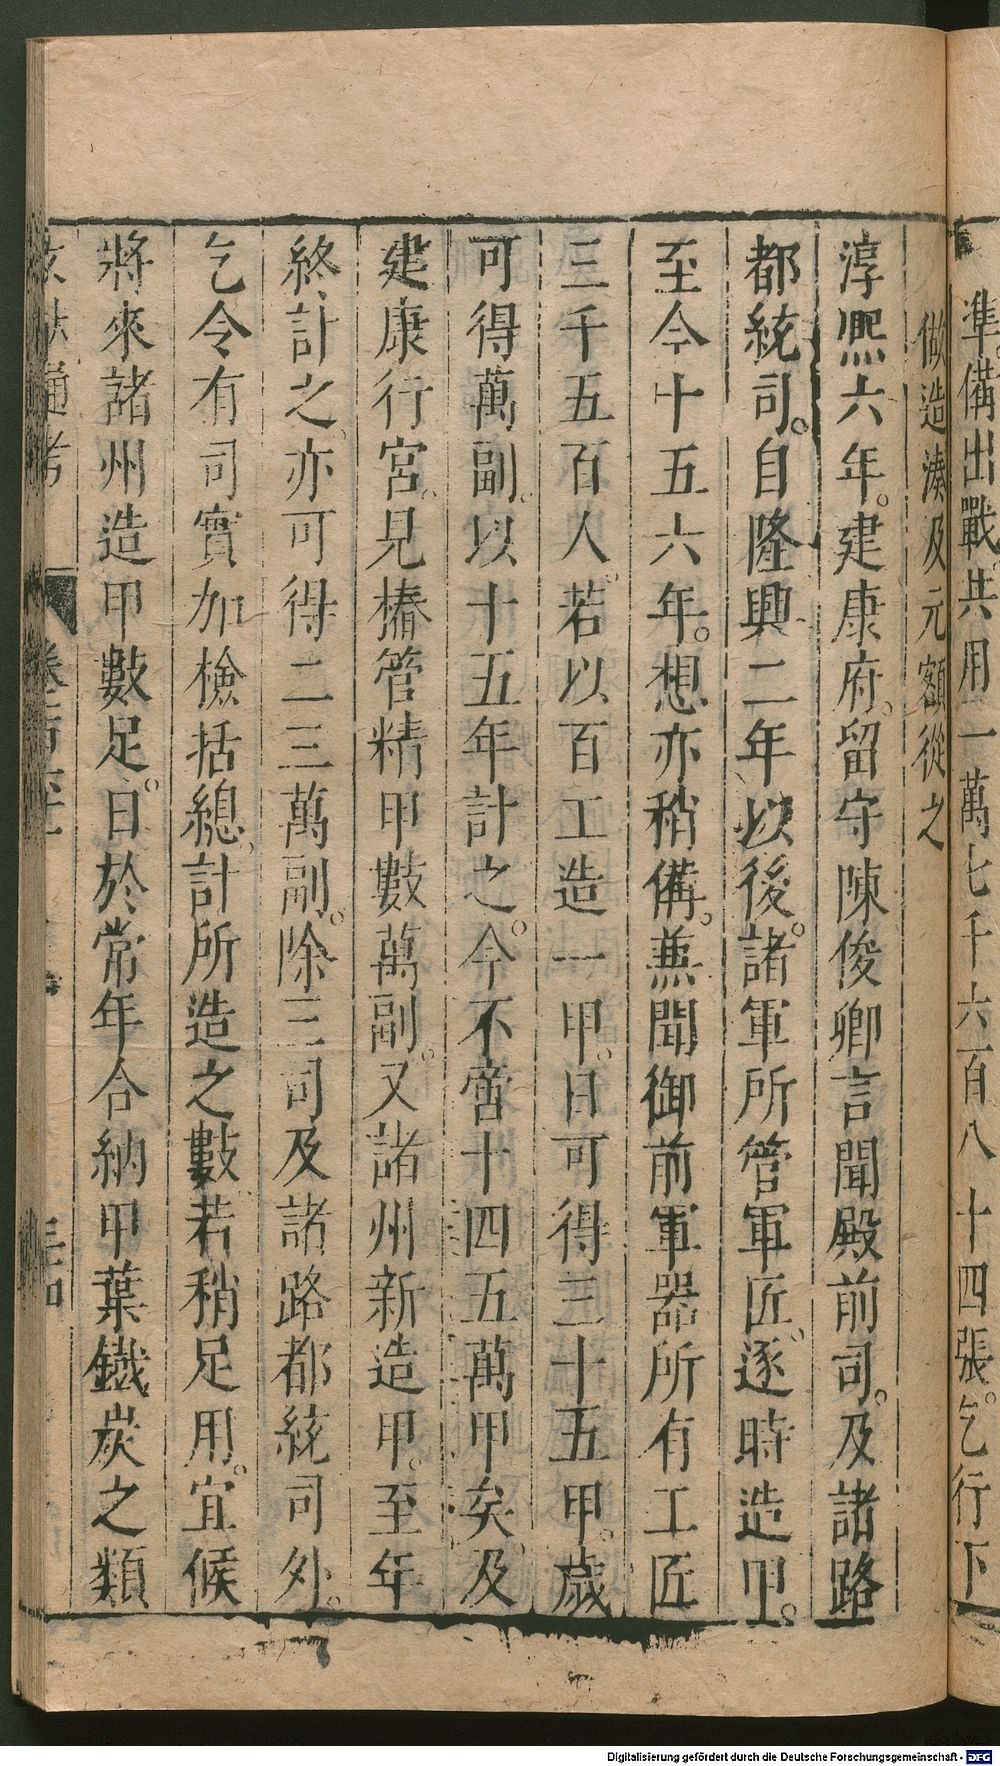 準備出戰共用一萬七千六百八十四張乞行下
做造湊及元額從之
淳熙六年。建康府。留守陳俊卿言聞殿前司。及諸路
都統司。自隆興二年以後。諸軍所管軍匠。逐時造甲。
至今十五六年。想亦稍備。蒹聞御前軍器所有工匠
三千五百人。若以百工造一甲。日可得三十五甲。歲
可得萬副。以十五年計之。今不啻十四五萬甲矣。及
建康行宮。見樁管精甲數萬副。又諸州新造甲。至年
終計之。亦可得二三萬副。除三司及諸路都統司外。
乞令有司實加檢括總計所造之數若稍足用。宜候
將來諸州造甲數足。日於常年合納甲葉鐵炭之類
通考
Digitalisierung gefördert durch die Deutsche Forschungsgemeinschaft - DFG